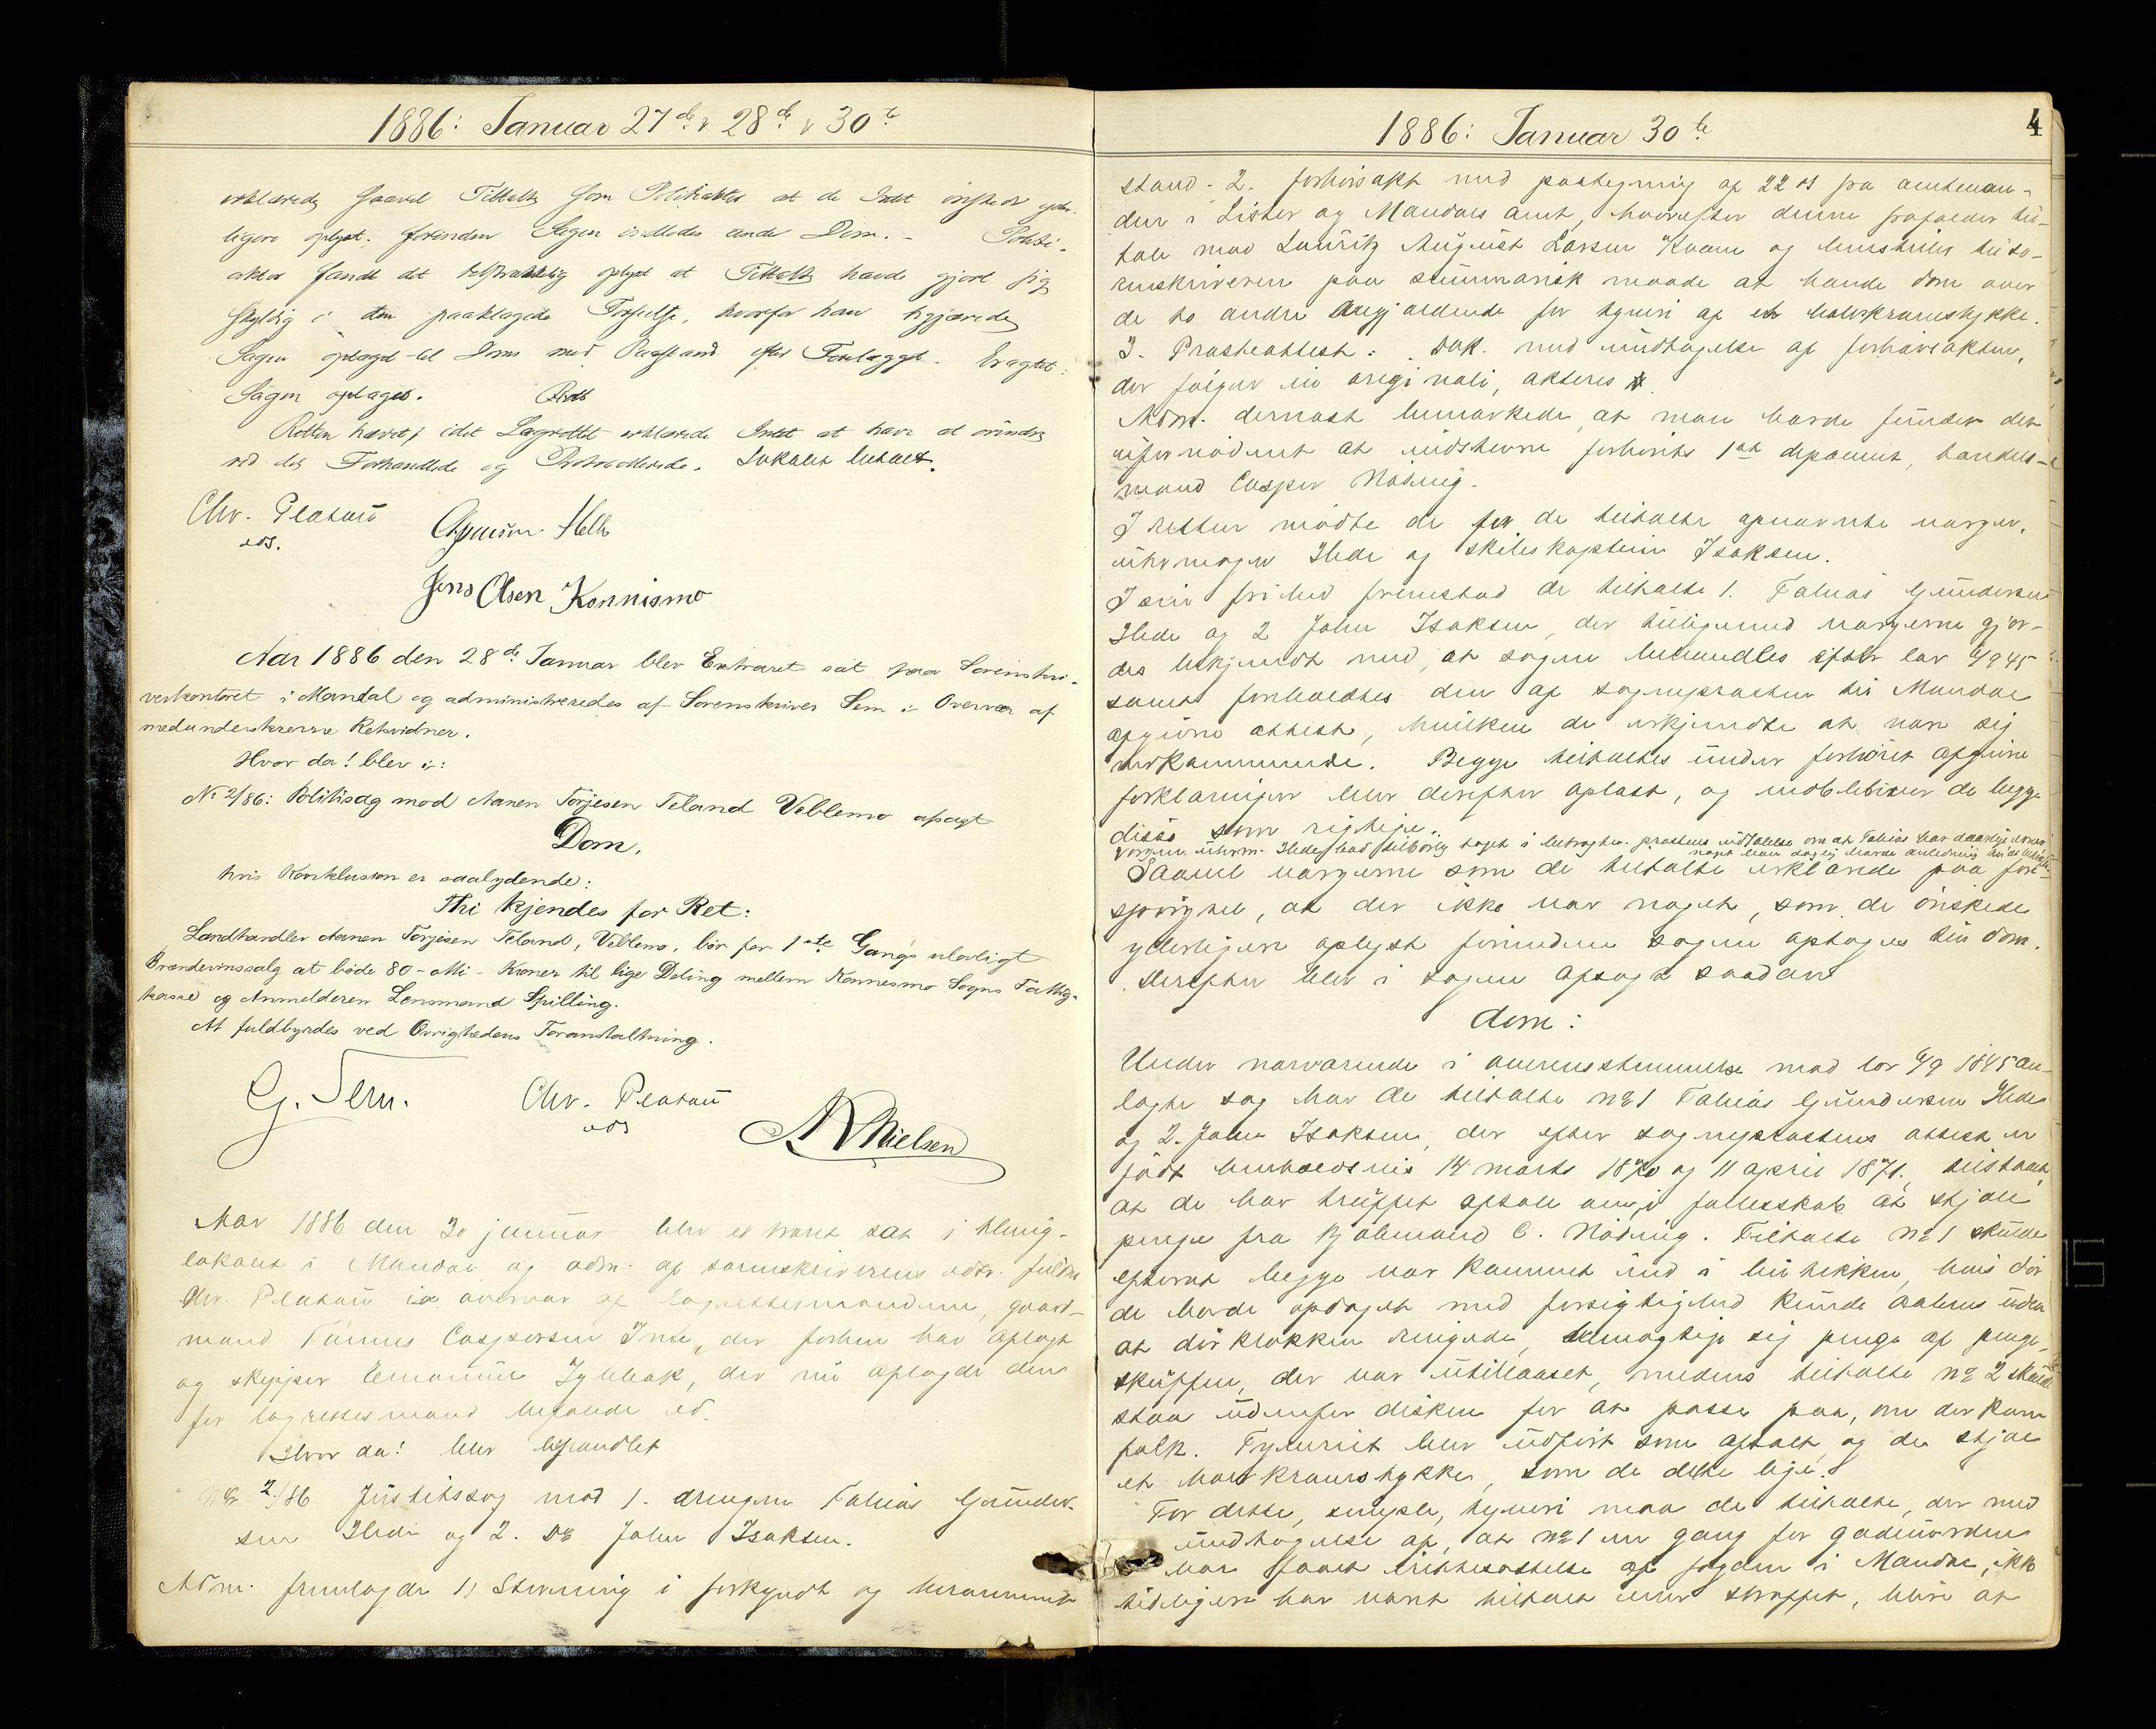 1886: Januar 27de & 28de & 30te
erklærede saavel Tiltalte som Politiaktor at de Intet ønskede yder-
ligere oplyst, forinden Sagen istedes under Dom. - Politi-
aktor fandt det tilstrækkelig oplyst at Tiltalte havde gjort sig
skyldig i den paaklagede Forseelse, hvorfor han begjærede
Sagen optaget til Doms med Paastand efter Forelægget. Eragtet:
Sagen optages.
Retten hævet, idet Lagrettet erklærede Intet at have at erindre
ved det Forhandlede og Protokollerede. Lokalet betalt.
Chr. Platou
eds.
Helle
Jens Olsen Konnismo
Aar 1886 den 28de Januar blev Extraret sat paa Sorenskri-
verkontoret i Mandal og administreredes af Sorenskriver Sem i Overvær af
medunderskrevne Retsvidner.
Hvor da! blev i:
No 2/86: Politisag mod Aanen Torjesen Teland Veblemo afsagt
Dom,
hvis Konklusion er saalydende:
Thi kjendes for Ret:
Landhandler Aanen Torjesen Teland, Veblemo, bør for 1ste Gangs ulovligt
Brændevinssalg at bøde 80 - otti - Kroner til lige Deling mellem Konnesmo Sogns Fattig-
kasse og Anmelderen Lensmand Spilling.
At fuldbyrdes ved Øvrighedens Foranstaltning.
G. Sem.
Chr. Platou
eds
A Nielsen
Aar 1886 den 30 januar blev extraret sat i thing-
lokalet i Mandal og adm. af sorenskriverens edsv. fuldm.
Chr. Platou i overvær af lagrettemændene, gaard-
mand Tønnes Caspersen Ime, der forhen har aflagt
og skipper Emanuel, der nu aflagde den
for lagrettesmænd befalede ed.
Hvor da! blev behandlet
No 2/86 Justitssag mod 1. drengen Tobias Gunder-
sen Hede og 2. Do John Isaksen.
Adm. fremlagde 1) Stevning i forkyndt og beramme-
1886: Januar 30te
4
stand. 2. forhørsakt med paategning af 22 ds fra amtman-
den i Lister og Mandals amt, hvorefter denne frafalder til-
tale mod Lauritz August Larsen Kvam og henstiller til so-
renskriveren paa summarisk maade at hænde dom over
de to andre angjældende for tyveri af et halvkronestykke.
3. Præsteattest: Dok. med undtagelse af forhørsakten,
der følger in originali, akteres
Adm. dernæst bemærkede, at man havde fundet det
ufornødent at indstevne forhørets 1ste deponent, handels-
mand Casper Nøding.
I retten mødte de for de tiltalte opnævnte værger,
uhrmager Hede og skibskaptein Isaksen.
I sin frihed fremstod de tiltalte 1. Tobias Gundersen
Hede og 2 John Isaksen, der tilligemed værgerne gjor-
des bekjendt med, at sagen behandles efter lov 6/9 45
samt foreholdtes den af sognepræsten til Mandal
afgivne attest, hvilken de erkjendte at være sig
vedkommende. Begge tiltaltes under forhøret afgivne
forklaringer blev derefter oplæst, og vedblev de begge
disse som rigtige.
Værgen uhrm. Hede bad tilbørlig taget i betragtn. præstens udtalelse om at Tobias har daarlige
Saavel værgerne som de tiltalte erklærede paa fore-
spørgsel, at der ikke var noget, som de ønskede
yderligere oplyst forinden sagen optages til dom.
Derefter blev i sagen afsagt saadan
dom:
Under nærværende i overensstemmelse med lov 6/9 1845 an-
lagte sag har de tiltalte no 1 Tobias Gundersen Hede
og 2. John Isaksen, der efter sognepræstens attest er
født henholdsvis 14 marts 1870 og 11 april 1871, tilstaaet,
at de har truffet aftale om i fællesskab at stjæle
penge fra kjøbmand C. Nøding. Tiltalte no 1 skulde
efterat begge var kommet ind i butikken, hvis dør
de havde opdaget med forsigtighed kunde aabnes uden
at dørklokken ringede, bemægtige sig penge af penge-
skuffen, der var utillaaset, medens tiltalte no 2 skulde
staa udenfor disken for at passe paa, om der kom
folk. Tyveriet blev udført som aftalt og de stjal
et halvkronestykke, som de delte lige.
For dette, simple, tyveri maa de tiltalte, der med
undtagelse af, at no 1 en gang for gadeuorden
har faaet irettesættelse af fogden i Mandal, ikke
tidligere har været tiltalt eller straffet, blive at